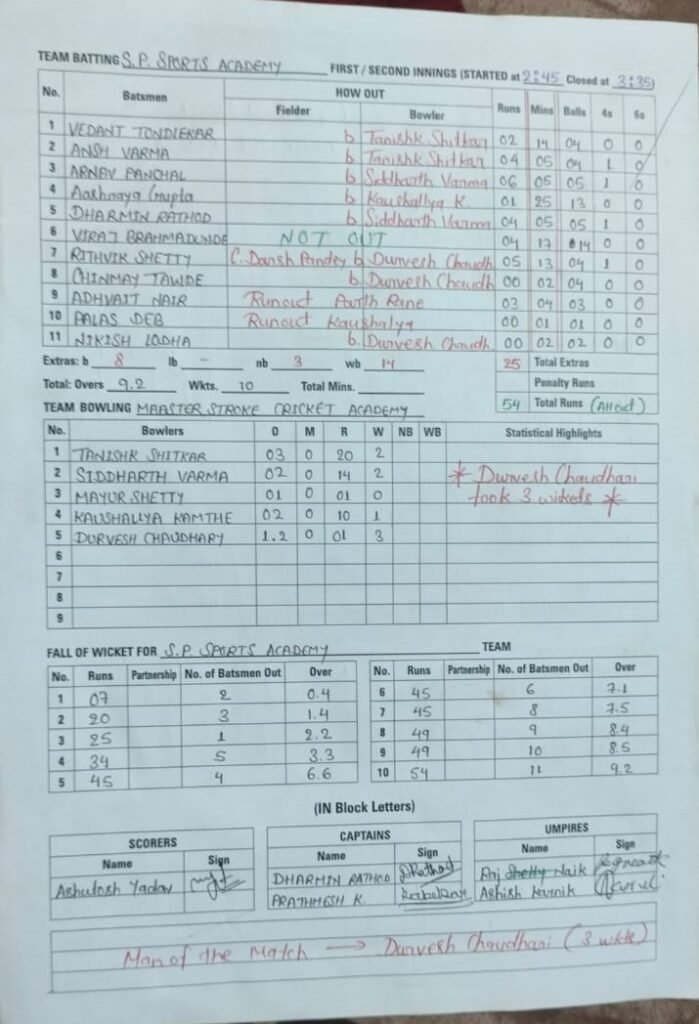 TEAM BATTING S.P. SPORTS ACADEMY FIRST / SECOND INNINGS (STARTED at 2:45 Closed at 3:35)
No. Batsmen HOW OUT Runs Mins Balls 4s 6s
Fielder Bowler
1 VEDANT TONDLEKAR b Tanishk Shitkar 02 19 04 0 0
2 ANSH VARMA b Tanishk Shitkar 04 05 04 1 0
3 ARNAV PANCHAL b Siddharth Varma 06 05 05 1 0
4 Aashnaya Gupta b Kaushallya K. 01 25 13 0 0
5 DHARMIN RATHOD b Siddharth Varma 04 05 05 1 0
6 VIRAJ BRAHMADUNDE NOT OUT 04 17 14 0 0
7 RITHVIK SHETTY C. Dansh Pandey b Durvesh Chaudh 05 13 04 1 0
8 CHINMAY TAWDE b. Durvesh Chaudh 00 02 04 0 0
9 ADHVAIT NAIR Runout Parth Rane 03 04 03 0 0
10 PALAS DEB Runout Kaushalya 00 01 01 0 0
11 NIKISH LODHA b. Durvesh Chaudh. 00 02 02 0 0
Extras: b 8 lb - nb 3 wb 14 25 Total Extras
Penalty Runs
Total: Overs 9.2 Wkts. 10 Total Mins. 54 Total Runs (All out)
TEAM BOWLING MAASTER STROKE CRICKET ACADEMY
No. Bowlers O M R W NB WB Statistical Highlights
1 TANISHK SHITKAR 03 0 20 2
2 SIDDHARTH VARMA 02 0 14 2 * Durvesh Chaudhari
3 MAYUR SHETTY 01 0 01 0 took 3 wickets *
4 KAUSHALLYA KAMTHE 02 0 10 1
5 DURVESH CHAUDHARY 1.2 0 01 3
6
7
8
9
FALL OF WICKET FOR S.P. SPORTS ACADEMY TEAM
No. Runs Partnership No. of Batsmen Out Over No. Runs Partnership No. of Batsmen Out Over
1 07 2 0.4 6 45 6 7.1
2 20 3 1.4 7 45 8 7.5
3 25 1 2.2 8 49 9 8.4
4 34 5 3.3 9 49 10 8.5
5 45 4 6.6 10 54 11 9.2
(IN Block Letters)
SCORERS CAPTAINS UMPIRES
Name Sign Name Sign Name Sign
Ashutosh Yadav DHARMIN RATHOD DRathod Raj Shetty Naik
PRATHMESH K. Ashish Karnik
Man of the Match → Durvesh Chaudhari (3 wkts)